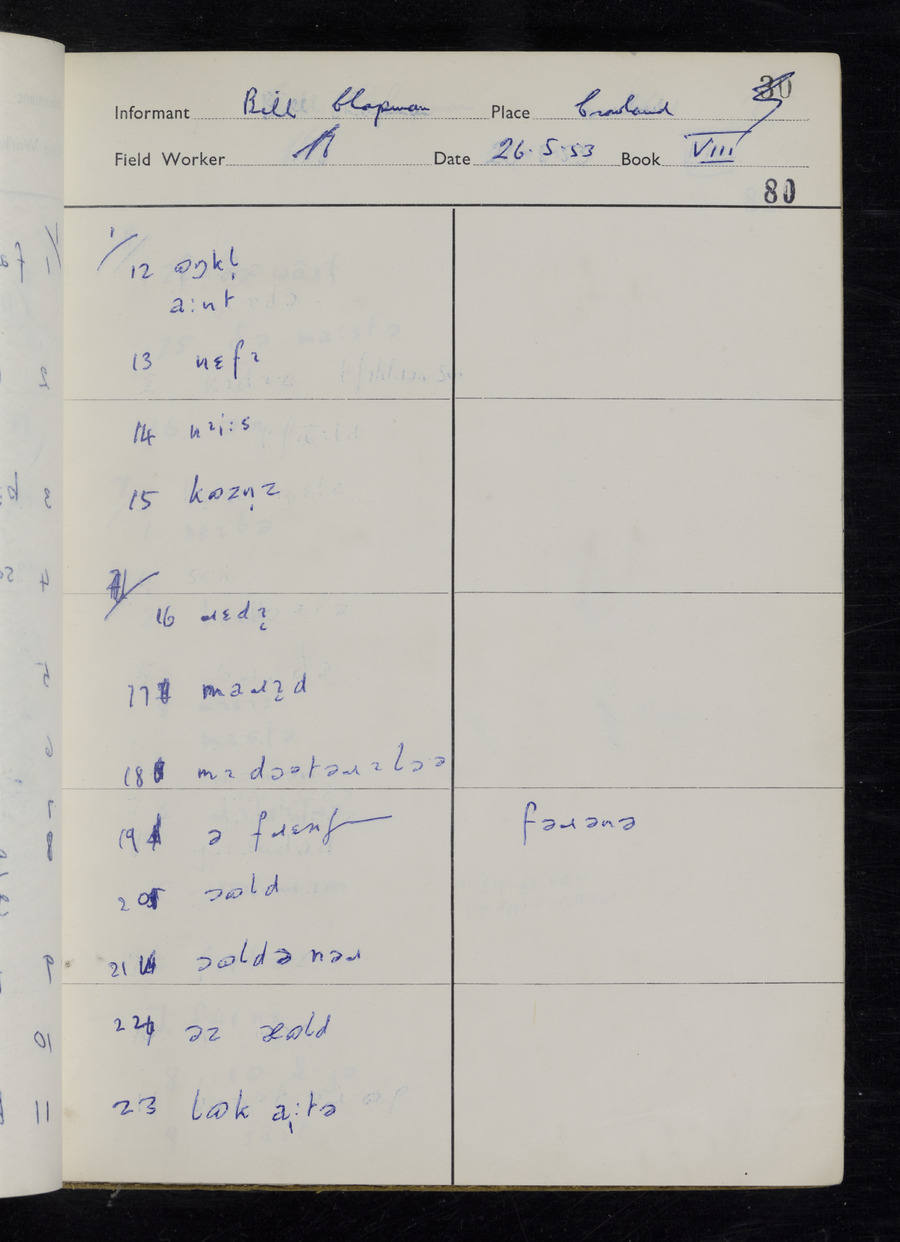 30
Informant Bill Chapman Place Crowland
Field Worker Date 26.5.53 Book VIII
80
1/
12 ɷŋkl̩
a:nt
13 nɛfɪ
14 nɪi:s
15 kɷzn̩z
16 ɹɛdɪ̨
17 maɹɪ̨d
18
19 ə fɹɛnʃ fəɹənə
20 əɷld
21 əɷldə nəɹ
22 əz əɷld
23 lɷk a̩:tə